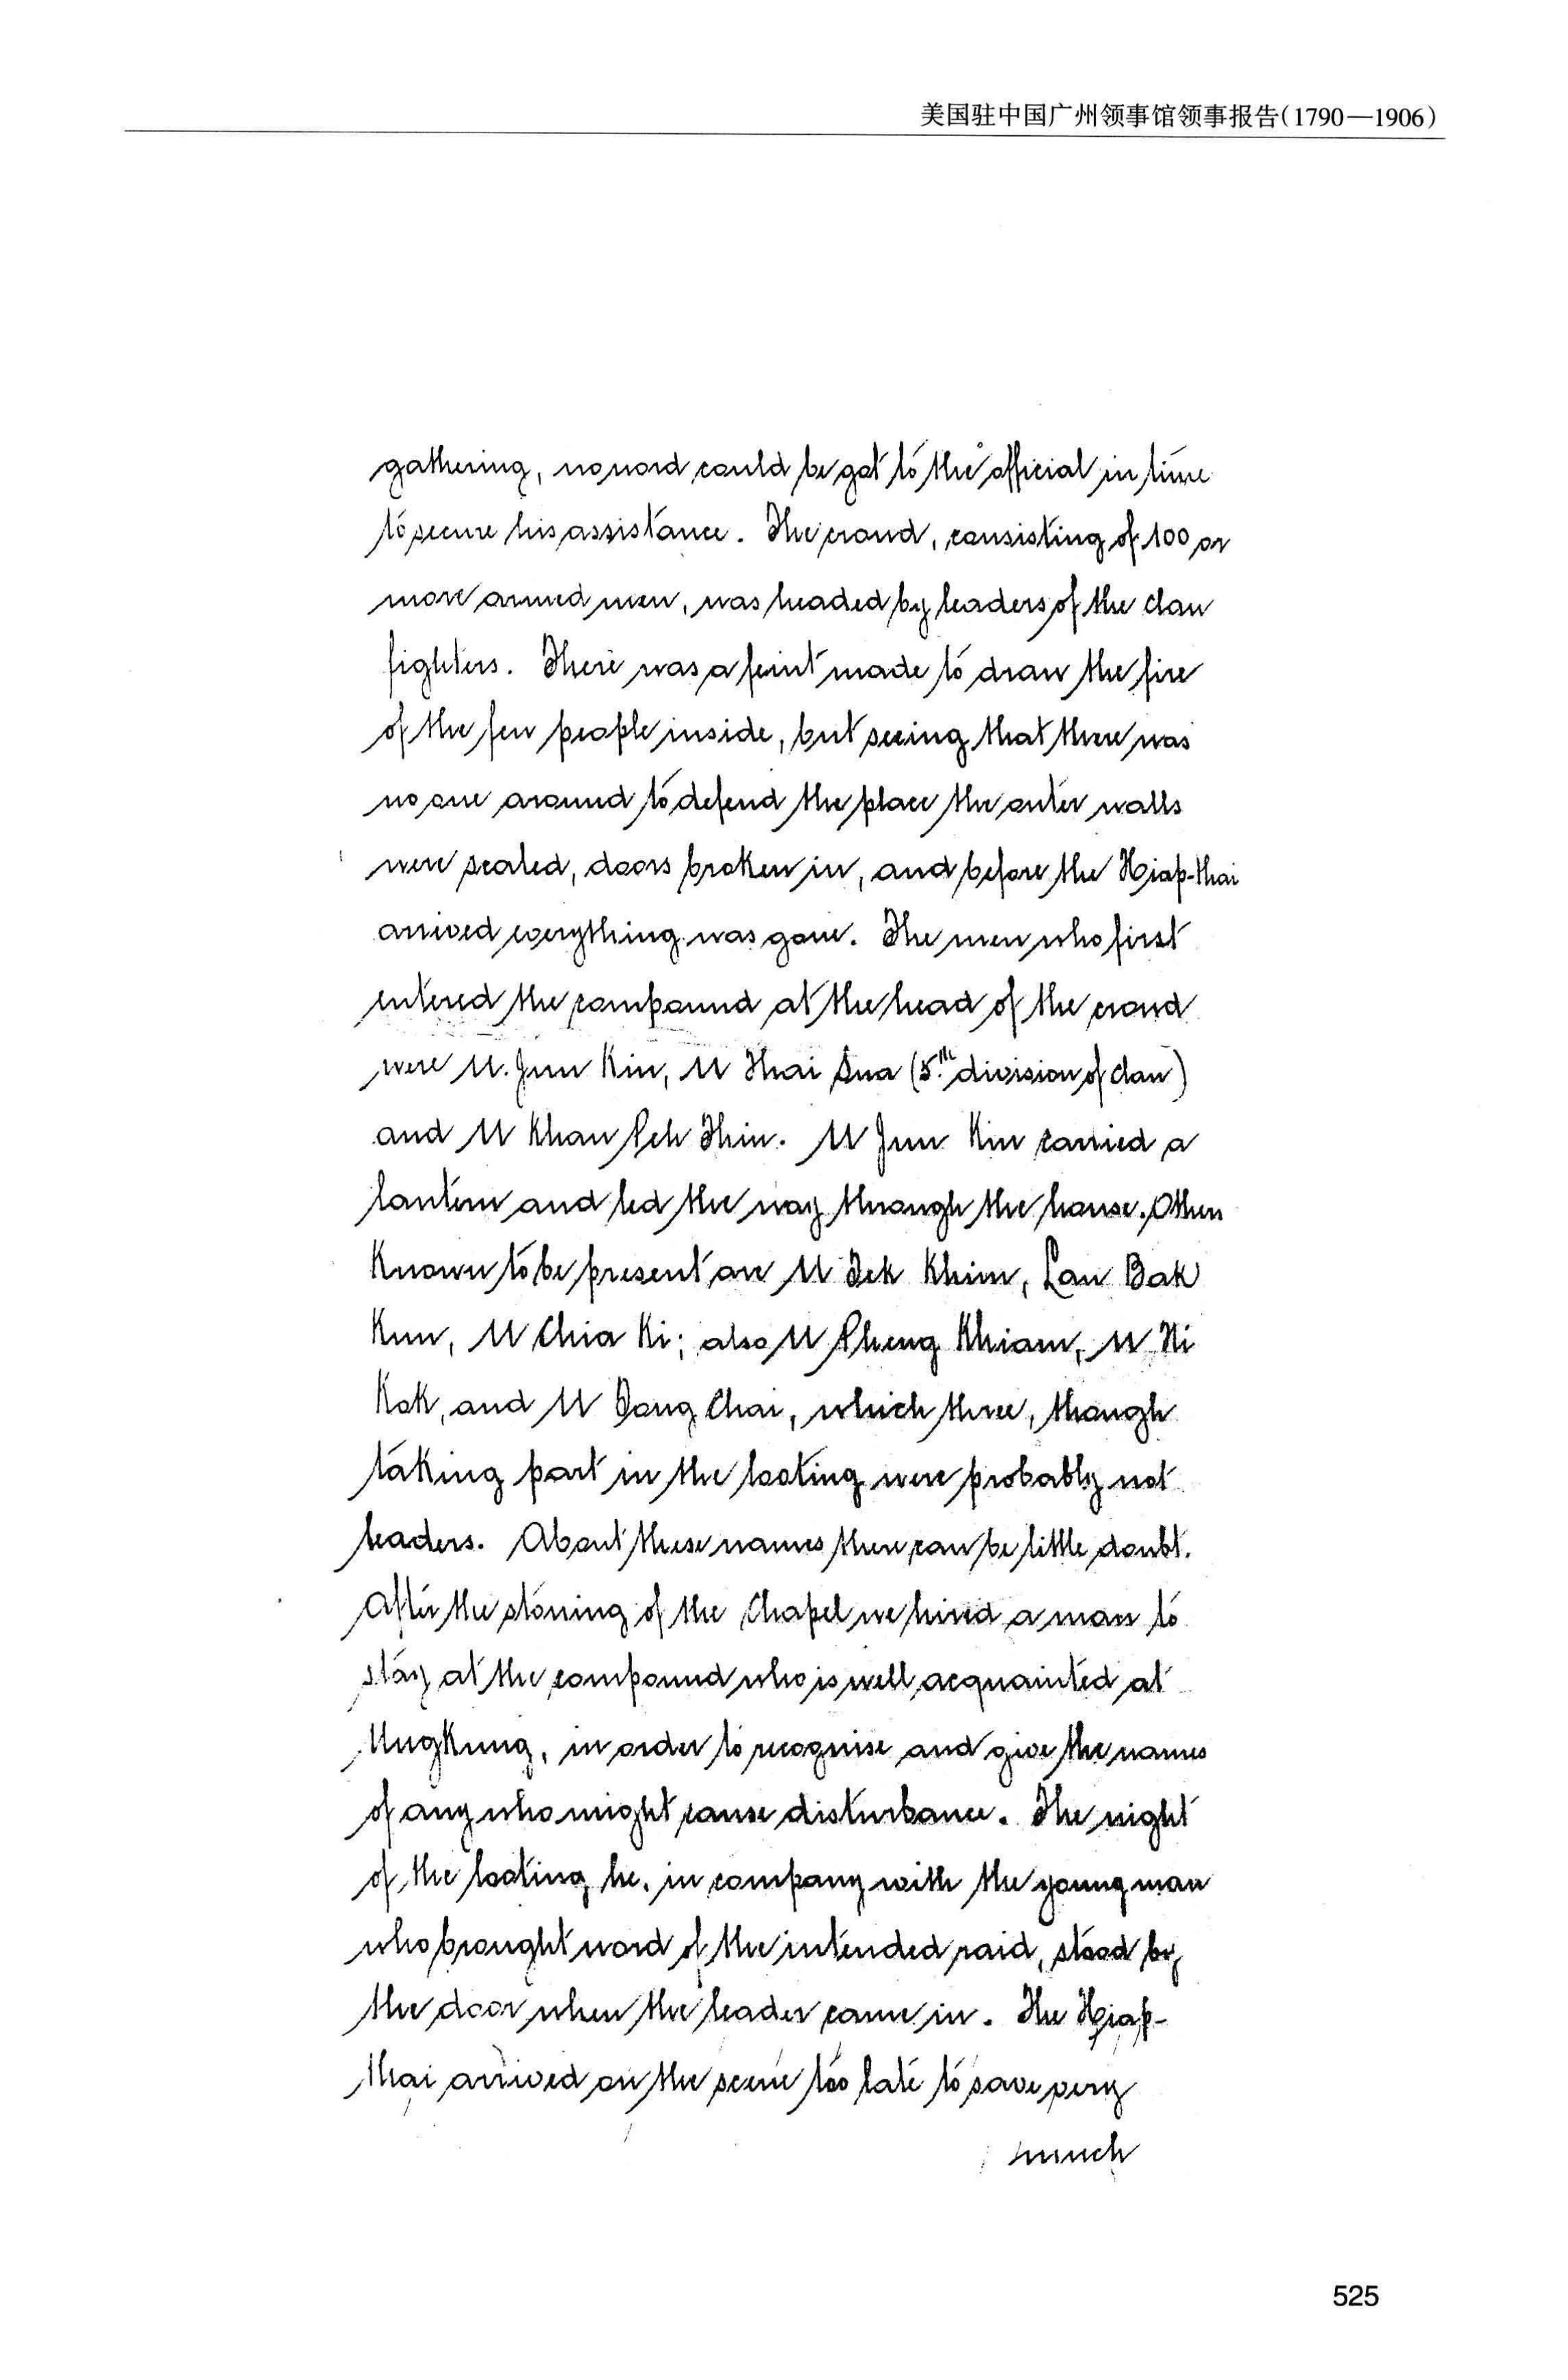 美国驻中国广州领事馆领事报告(1790—1906)
gathering, no word could be got to the official in time
to secure his assistance. The crowd, consisting of 100 or
more armed men, was headed by leaders of the clan
fighters. There was a feint made to draw the fire
of the few people inside, but seeing that there was
no one around to defend the place the outer walls
were scaled, doors broken in, and before the Hiap-thai
arrived everything was gone. The men who first
entered the compound at the head of the crowd
were U. Jun Kin, U Thai Sua (5.th division of clan)
and U Khan Peh Thin. U Jun Kin carried a
lantern and led the way through the house. Others
known to be present are U Tek Khim, Lau Bak
Kun, U Chia Ki; also U Pheng Khiam, U Ni
Kok, and U Dong Chai, which three, though
taking part in the looting were probably not
leaders. About these names there can be little doubt.
After the stoning of the Chapel we hired a man to
stay at the compound who is well acquainted at
Ungkung, in order to recognise and give the names
of any who might cause disturbance. The night
of the looting he, in company with the young man
who brought word of the intended raid, stood by
the door when the leader came in. The Hiap-
thai arrived on the scene too late to save very
much
525